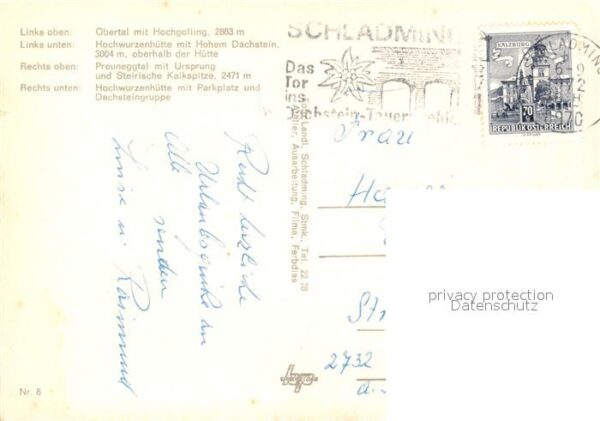 Links oben: Obertal mit Hochgolling, 2863 m
Links unten: Hochwurzenhütte mit Hohem Dachstein,
3004 m, oberhalb der Hütte
Rechts oben: Preuneggtal mit Ursprung
und Steirische Kalkspitze, 2471 m
Rechts unten: Hochwurzenhütte mit Parkplatz und
Dachsteingruppe
SCHLADMING
Das
Tor
ins
Dachstein-Tauern
SALZBURG
70
REPUBLIK ÖSTERREICH
SCHLADMING
1970
Landl, Schladming, Stmk., Tel. 22 78
Ausarbeitung, Filme, Farbdias
Recht herzliche
Urlaubsgrüße an
alle senden
Luise u. Raimund
Frau
2732
privacy protection
Datenschutz
Nr. 8